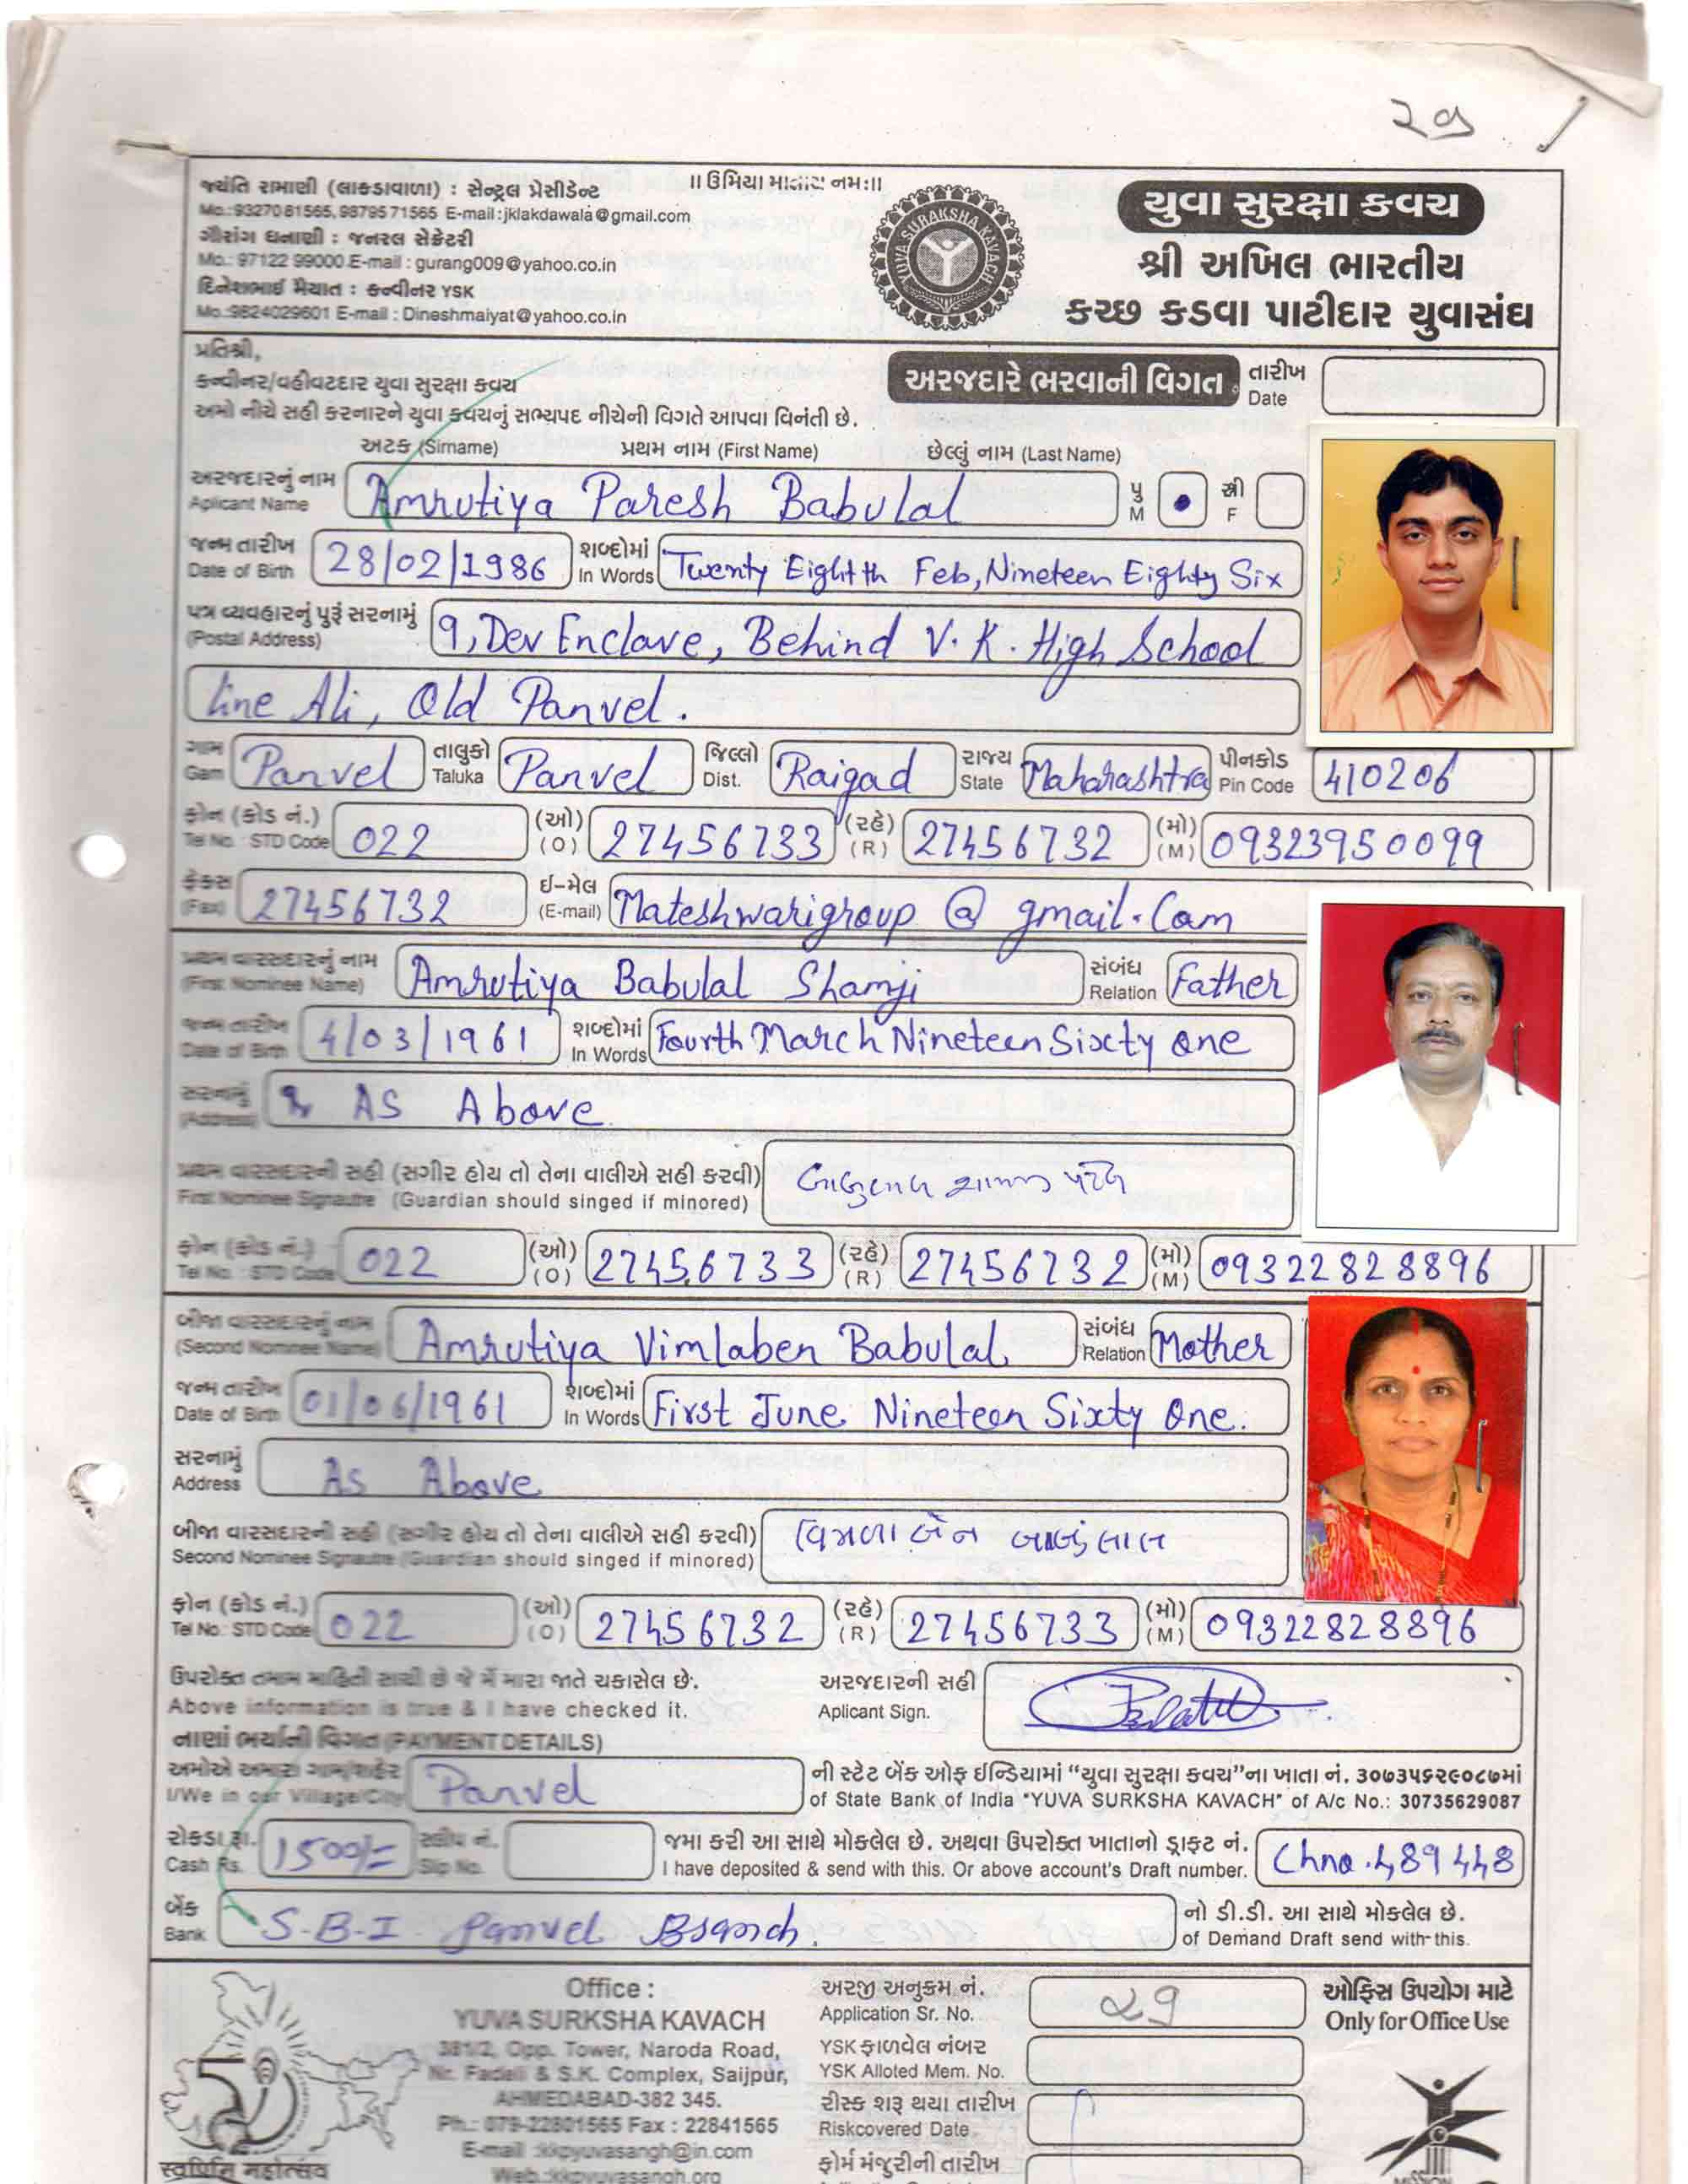 ૨૭
॥ ઉમિયા માતાય નમઃ॥
જયંતિ રામાણી (લાકડાવાળા) : સેન્ટ્રલ પ્રેસીડેન્ટ
Mo.:9327081565, 9879571565 E-mail:jklakdawala@gmail.com
ગૌરાંગ ધનાણી : જનરલ સેક્રેટરી
Mo.: 97122 99000 E-mail : gurang009@yahoo.co.in
દિનેશભાઈ મૈયાત : કન્વીનર YSK
Mo.:9824029601 E-mail : Dineshmaiyat@yahoo.co.in
YUVA SURAKSHA KAVACH
યુવા સુરક્ષા કવચ
શ્રી અખિલ ભારતીય
કચ્છ કડવા પાટીદાર યુવાસંઘ
પ્રતિશ્રી,
કન્વીનર/વહીવટદાર યુવા સુરક્ષા કવચ
અમો નીચે સહી કરનારને યુવા કવચનું સભ્યપદ નીચેની વિગતે આપવા વિનંતી છે.
અરજદારે ભરવાની વિગત
તારીખ
Date
અટક (Sirname) પ્રથમ નામ (First Name) છેલ્લું નામ (Last Name)
અરજદારનું નામ
Aplicant Name Amrutiya Paresh Babulal પુ M સ્રી F
જન્મ તારીખ
Date of Birth 28/02/1986 શબ્દોમાં In Words Twenty Eightth Feb, Nineteen Eighty Six
પત્ર વ્યવહારનું પુરૂં સરનામું
(Postal Address) 9, Dev Enclave, Behind V. K. High School
Line Ali, Old Panvel.
ગામ Gam Panvel તાલુકો Taluka Panvel જિલ્લો Dist. Raigad રાજ્ય State Maharashtra પીનકોડ Pin Code 410206
ફોન (કોડ નં.)
Tel No. : STD Code 022 (ઓ) (O) 27456733 (રહે) (R) 27456732 (મો) (M) 09323950099
ફેક્સ (Fax) 27456732 ઈ-મેલ (E-mail) Mateshwarigroup @ gmail.Com
પ્રથમ વારસદારનું નામ
(First Nominee Name) Amrutiya Babulal Shamji સંબંધ Relation Father
જન્મ તારીખ
Date of Birth 4/03/1961 શબ્દોમાં In Words Fourth March Nineteen Sixty One
સરનામું
(Address) As Above
પ્રથમ વારસદારની સહી (સગીર હોય તો તેના વાલીએ સહી કરવી)
First Nominee Signautre (Guardian should singed if minored)
ફોન (કોડ નં.)
Tel No. : STD Code 022 (ઓ) (O) 27456733 (રહે) (R) 27456732 (મો) (M) 09322828896
બીજા વારસદારનું નામ
(Second Nominee Name) Amrutiya Vimlaben Babulal સંબંધ Relation Mother
જન્મ તારીખ
Date of Birth 01/06/1961 શબ્દોમાં In Words First June Nineteen Sixty One.
સરનામું
Address As Above
બીજા વારસદારની સહી (સગીર હોય તો તેના વાલીએ સહી કરવી)
Second Nominee Signautre (Guardian should singed if minored) વિમળા બેન બાબુલાલ
ફોન (કોડ નં.)
Tel No. : STD Code 022 (ઓ) (O) 27456732 (રહે) (R) 27456733 (મો) (M) 09322828896
ઉપરોક્ત તમામ માહિતી સાચી છે જે મેં મારા જાતે ચકાસેલ છે.
Above information is true & I have checked it.
અરજદારની સહી
Aplicant Sign.
નાણાં ભર્યાની વિગત (PAYMENT DETAILS)
અમોએ અમારા ગામ/શહેર
I/We in our Village/City Panvel
ની સ્ટેટ બેંક ઓફ ઈન્ડિયામાં “યુવા સુરક્ષા કવચ”ના ખાતા નં. ૩૦૭૩૫૬૨૯૦૮૭માં
of State Bank of India "YUVA SURKSHA KAVACH" of A/c No.: 30735629087
રોકડા રૂા.
Cash Rs. 1500/= સ્લીપ નં. Slip No.
જમા કરી આ સાથે મોકલેલ છે. અથવા ઉપરોક્ત ખાતાનો ડ્રાફ્ટ નં.
I have deposited & send with this. Or above account's Draft number. Chno.489448
બેંક
Bank S.B.I Panvel Branch.
નો ડી.ડી. આ સાથે મોકલેલ છે.
of Demand Draft send with-this.
Office :
YUVA SURKSHA KAVACH
381/2, Opp. Tower, Naroda Road,
Nr. Fadeli & S.K. Complex, Saijpur,
AHMEDABAD-382 345.
Ph.: 079-22801565 Fax : 22841565
E-mail :kkpyuvasangh@in.com
Web.:kkpyuvasangh.org
સ્વર્ણિમ મહોત્સવ
અરજી અનુક્રમ નં.
Application Sr. No. 29
YSK ફાળવેલ નંબર
YSK Alloted Mem. No.
રીસ્ક શરૂ થયા તારીખ
Riskcovered Date
ફોર્મ મંજુરીની તારીખ
ઓફિસ ઉપયોગ માટે
Only for Office Use
MISSION